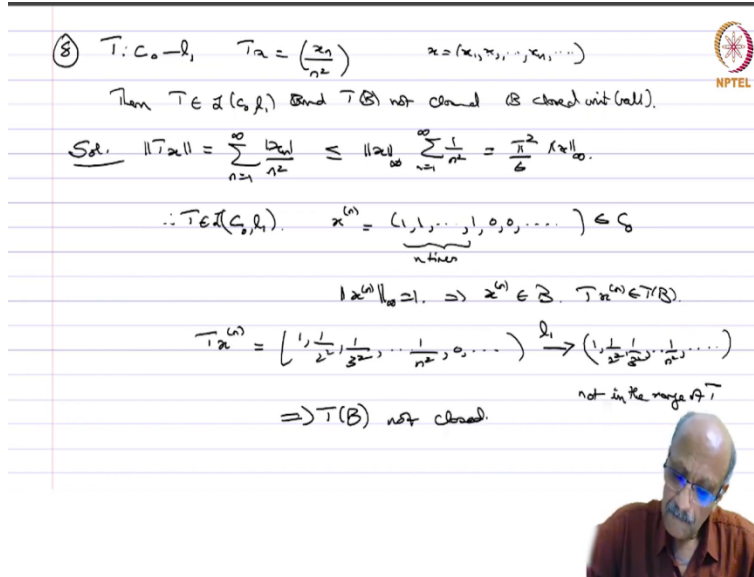 ⑧ T: c₀ → l₁ Tx = (xₙ/n²) x = (x₁, x₂, ..., xₙ, ...)
NPTEL
Then T ∈ L(c₀, l₁) and T(B) not closed (B closed unit ball).
Sol. ‖Tx‖ = ∑_{n=1}^{∞} |xₙ|/n² ≤ ‖x‖_∞ ∑_{n=1}^{∞} 1/n² = π²/6 ‖x‖_∞.
∴ T ∈ L(c₀, l₁). x⁽ⁿ⁾ = (1, 1, ..., 1, 0, 0, ....) ∈ c₀
n times
‖x⁽ⁿ⁾‖_∞ = 1. ⇒ x⁽ⁿ⁾ ∈ B. Tx⁽ⁿ⁾ ∈ T(B).
Tx⁽ⁿ⁾ = (1, 1/2², 1/3², ... 1/n², 0, ...) →^{l₁} (1, 1/2², 1/3², ... 1/n², ....)
not in the range of T
⇒ T(B) not closed.